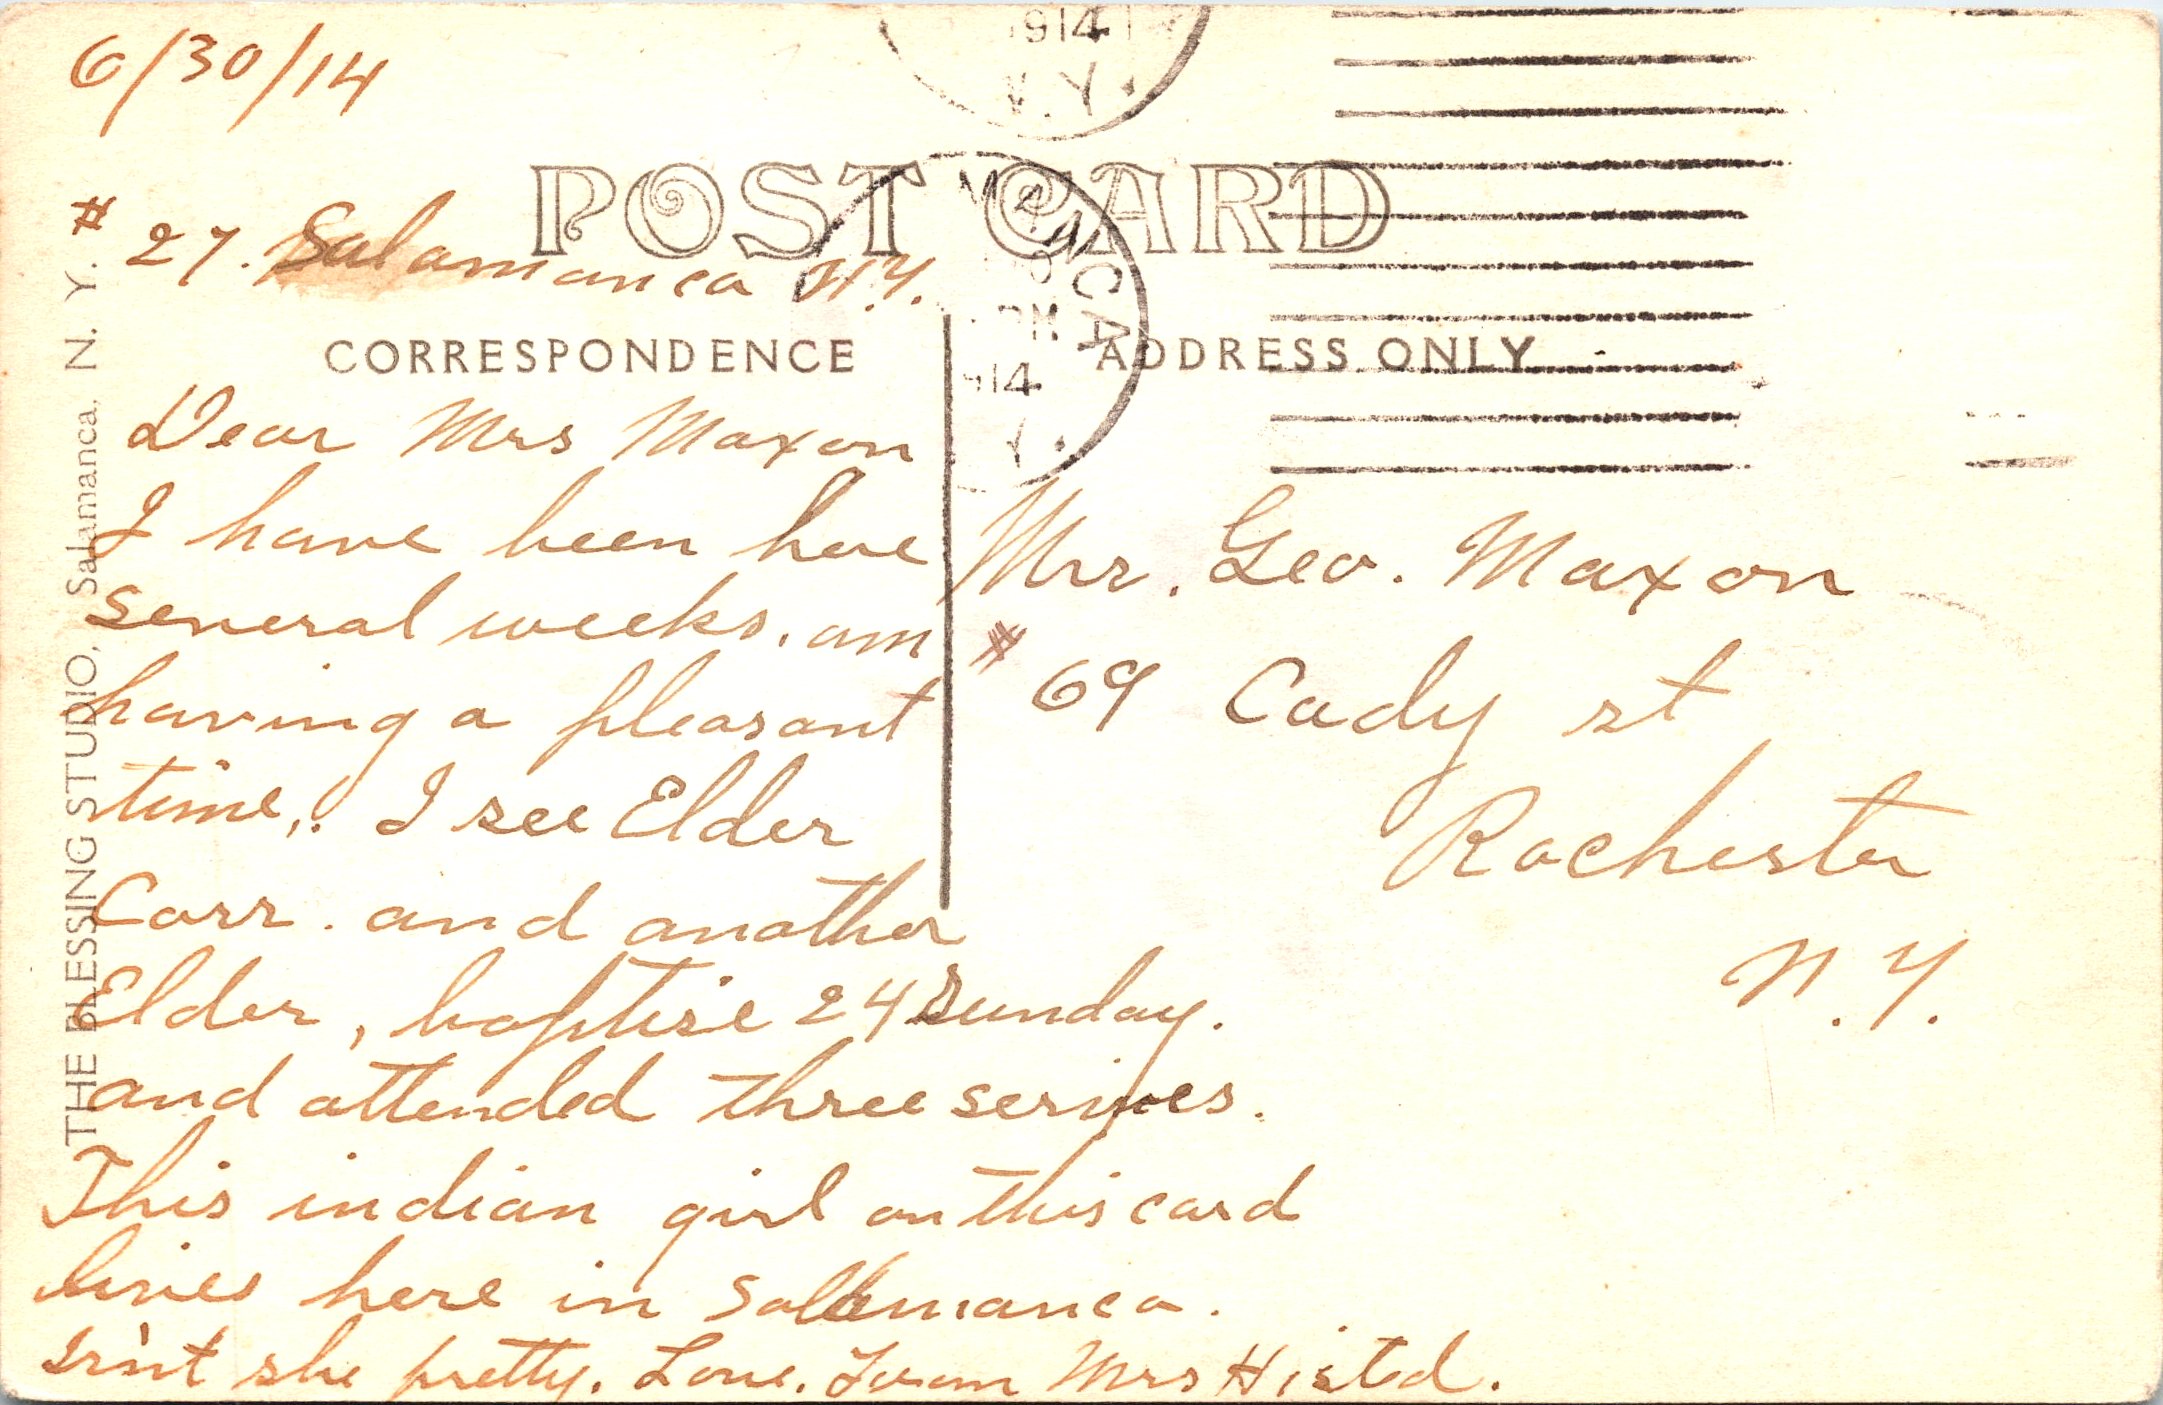 6/30/14
1914
N.Y.
POST CARD
# 27. Salamanca N.Y.
MANCA
30
PM
1914
Y.
CORRESPONDENCE
ADDRESS ONLY
Dear Mrs Maxon
I have been here
several weeks. am
having a pleasant
time,. I see Elder
Carr. and another
Elder, baptise 24 Sunday.
and attended three serives.
This indian girl on this card
lives here in Salamanca.
Isn't she pretty. Love. From Mrs Histed.
Mrs. Geo. Maxon
# 69 Cady st
Rochester
N.Y.
THE BLESSING STUDIO, Salamanca, N. Y.